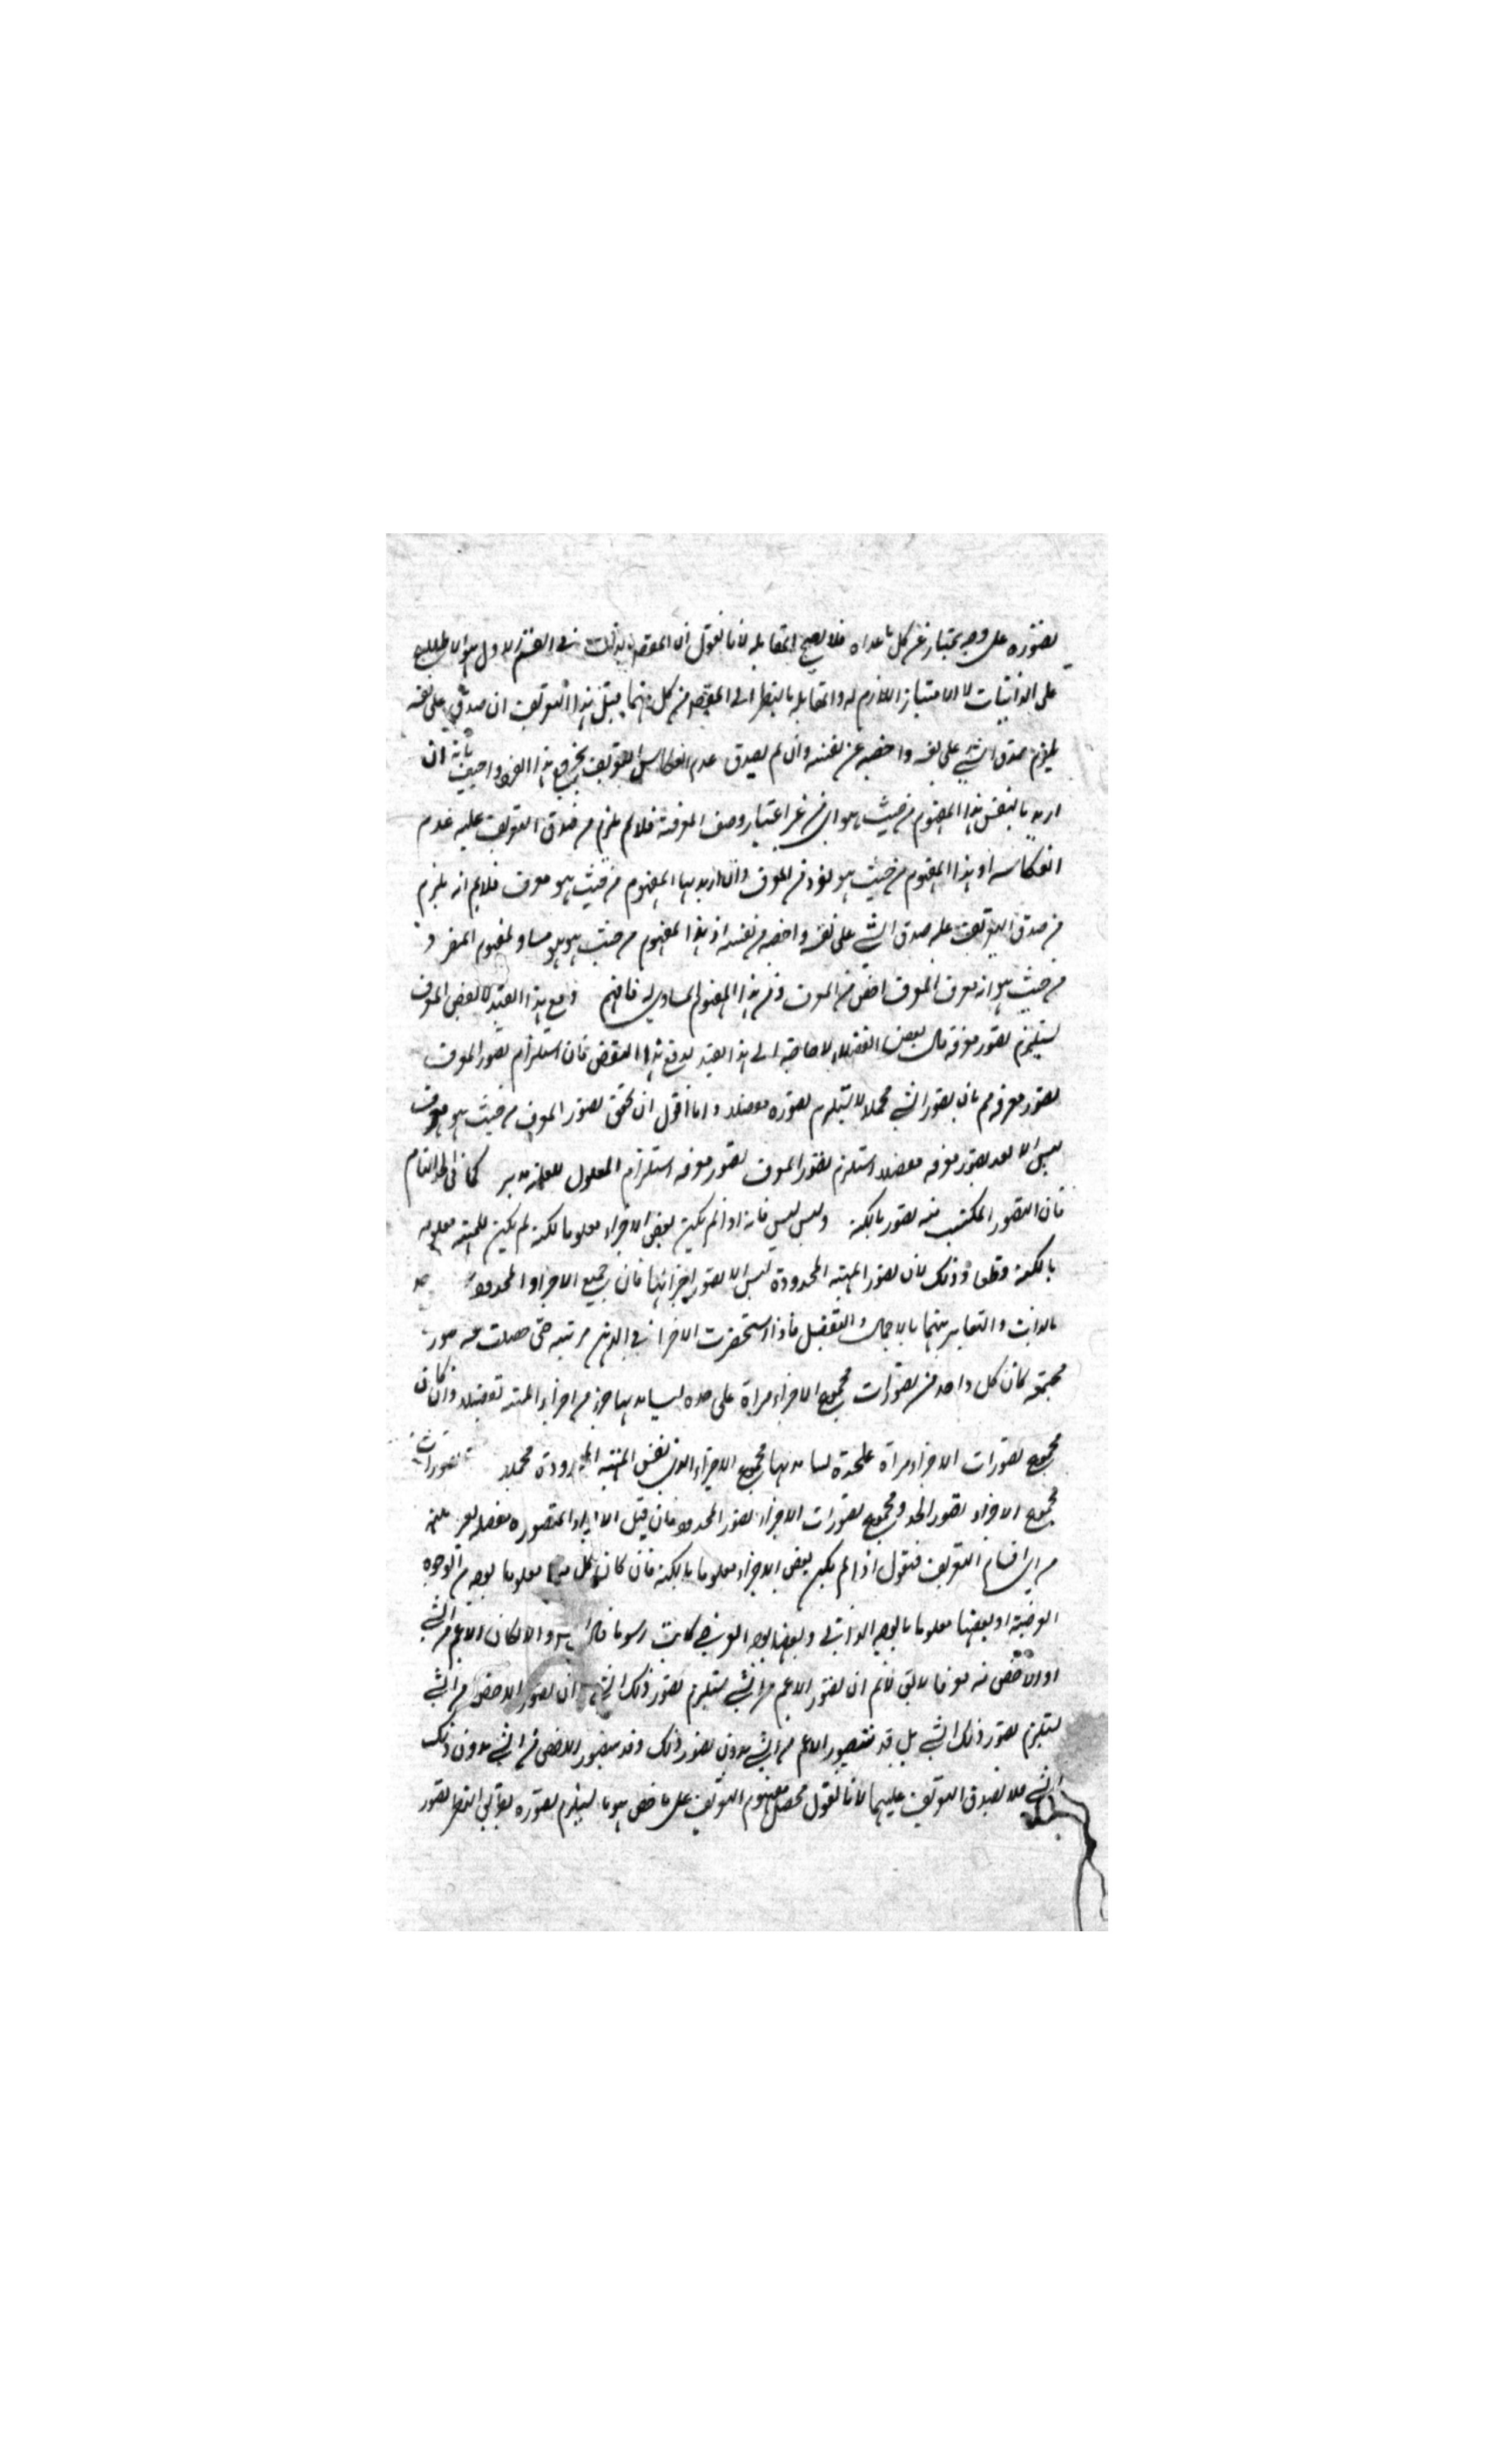 تصوره على وجه يمتاز عن كل ما عداه فلا يصح المقابلة لانا نقول ان المقصود بالذات في القسم الاول هو الاطلاع
على الذاتيات لا الامتياز اللازم له والمقابلة بالنظر الى المقصود من كل منهما قيل هذا التعريف ان صدق على نفسه
يلزم صدق الشيء على نفسه واخصيه عن نفسه وان لم يصدق عدم انعكاس التعريف بخروج هذا الفرد واجيب بانه ان
اريد بالنفس هذا المفهوم من حيث هو اي من غير اعتبار وصف المعرفية فلانم يلزم من صدق التعريف عليه عدم
انعكاسه اذ هذا المفهوم من حيث هو فرد من المعرف وان اريد بها المفهوم من حيث هو معرف فلانم انه يلزم
من صدق التعريف عليه صدق الشيء على نفسه واخصيه من نفسه اذ هذا المفهوم من حيث هو هو مساو لمفهوم المعرف و
من حيث هو انه معرف المعرف اخص من المعرف ومن هذا المفهوم المساوي له فافهم ومع هذا القيد لا بعض المعرف
يستلزم تصور معرفه قال بعض الفضلاء لا حاجة الى هذا القيد لدفع هذا النقض فان استلزام تصور المعرف
تصور معرفه مم فان تصور الشيء مجملا لا يستلزم تصوره مفصلا وانا اقول ان تحقق تصور المعرف من حيث هو معرف
ليس الا بعد تصور معرفه مفصلا استلزم تصور المعرف تصور معرفه استلزام المعلول للعلة تدبر كما في الحد التام
فان التصور المكتسب منه تصور بالكنه وليس ليس فانه اذا لم يكن بعض الاجزاء معلوما لكنه لم يكن الماهية معلومة
بالكنه قطعا وذلك لان تصور الماهية المحدودة ليس الا تصور اجزائها فان جميع الاجزاء والمحدود
بالذات والتغاير بينهما بالاجمال والتفصيل فاذا استحضرت الاجزاء في الذهن مرتبة حتى حصلت صور
مجتمعة كان كل واحد من تصورات مجموع الاجزاء مراة على حده ليشاهد بها جزء من اجزاء الماهية تفصيلا وان كان
مجموع تصورات الاجزاء مراة علحدة ليشاهد بها مجموع الاجزاء الذي نفس الماهية المحدودة مجملا فتصورات
مجموع الاجزاء تصور الحد ومجموع تصورات الاجزاء تصور المحدود فان قيل الاجزاء المتصورة مفصلة
من اي اقسام التعريف فنقول اذا لم يكن بعض الاجزاء معلوما بالكنه فان كان كل منها معلوما بوجه من الوجوه
العرضية او بعضها معلوما بالوجه الذاتي وبعضها بوجه العرضي كانت رسوما والا لكان الاعم من الشيء
او الاخص منه معرفا لا يق لانم ان تصور الاعم من الشيء يستلزم تصور ذلك الشيء ان تصور الاخص من الشيء
يستلزم تصور ذلك الشيء بل قد يتصور الاعم من الشيء بدون تصور ذلك وقد يتصور الاخص من الشيء بدون ذلك
الشيء فلا يصدق التعريف عليهما لانا نقول محصل مفهوم التعريف على ما خص هو ما يستلزم تصوره بطريق النظر تصور